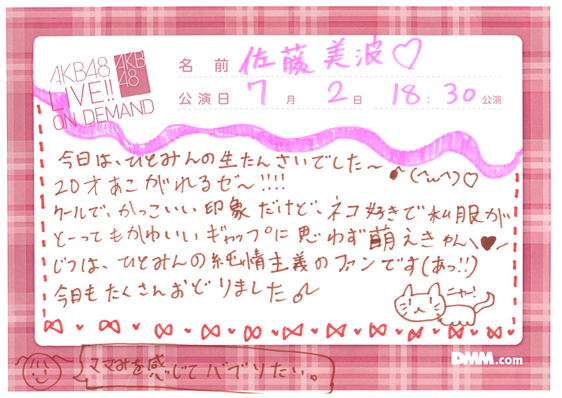 AKB48
LIVE!!
ON DEMAND
AKB
48
名 前 佐藤美波♡
公演日 7月 2日 18:30公演
今日は、ひとみんの生たんさいでした〜♪(^ω^)♡
20才あこがれるゼ〜!!!!
クールで、かっこいい印象だけど、ネコ好きで私服が
とーってもかわいいギャップに思わず萌えきゅん♥
じつは、ひとみんの純情主義のファンです(あっ!!)
今日もたくさんおどりました♪
ニャー!
ママみを感じてバブりたい。
DMM.com